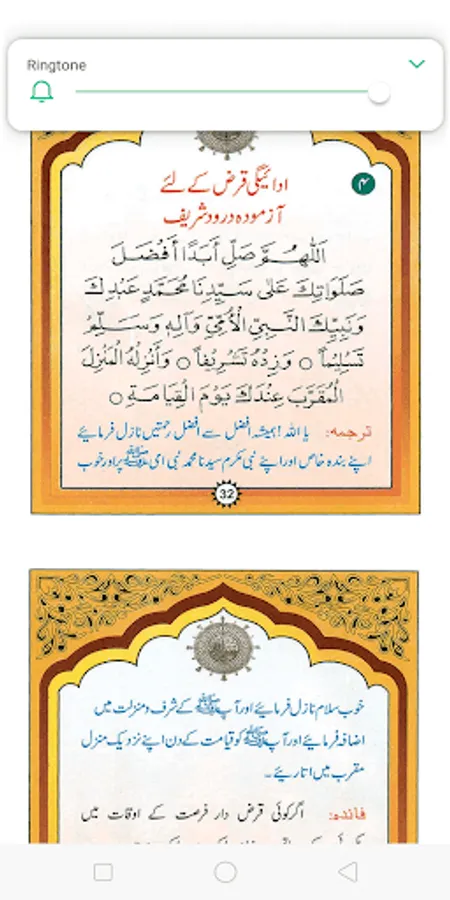 Ringtone
۴
ادائیگی قرض کے لئے
آزمودہ درود شریف
اَللّٰهُمَّ صَلِّ اَبَدًا اَفْضَلَ
صَلَوَاتِكَ عَلٰى سَيِّدِنَا مُحَمَّدٍ عَبْدِكَ
وَنَبِيِّكَ النَّبِيِّ الْاُمِّيِّ وَاٰلِهٖ وَسَلِّمْ
تَسْلِيْمًا ○ وَزِدْهُ تَشْرِيْفًا ○ وَاَنْزِلْهُ الْمَنْزِلَ
الْمُقَرَّبَ عِنْدَكَ يَوْمَ الْقِيَامَةِ ○
ترجمہ: یا اللہ! ہمیشہ افضل سے افضل رحمتیں نازل فرمائیے
اپنے بندہ خاص اور اپنے نبی مکرم سیدنا محمد نبی امی ﷺ پر اور خوب
32
خوب سلام نازل فرمائیے اور آپ ﷺ کے شرف و منزلت میں
اضافہ فرمائیے اور آپ ﷺ کو قیامت کے دن اپنے نزدیک منزل
مقرب میں اتاریئے۔
فائدہ: اگر کوئی قرض دار فرصت کے اوقات میں